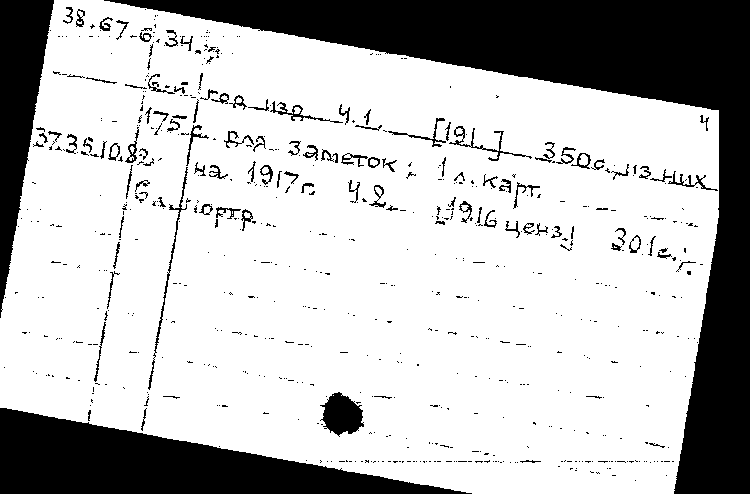 4
38.67.6.34.
6-й год изд. Ч.1. [191.] 350с., из них
175 с. для заметок; 1 л. карт.
37.35.10.82.
на 1917 г. Ч.2. [1916 ценз.] 301с.;
6 л. портр.